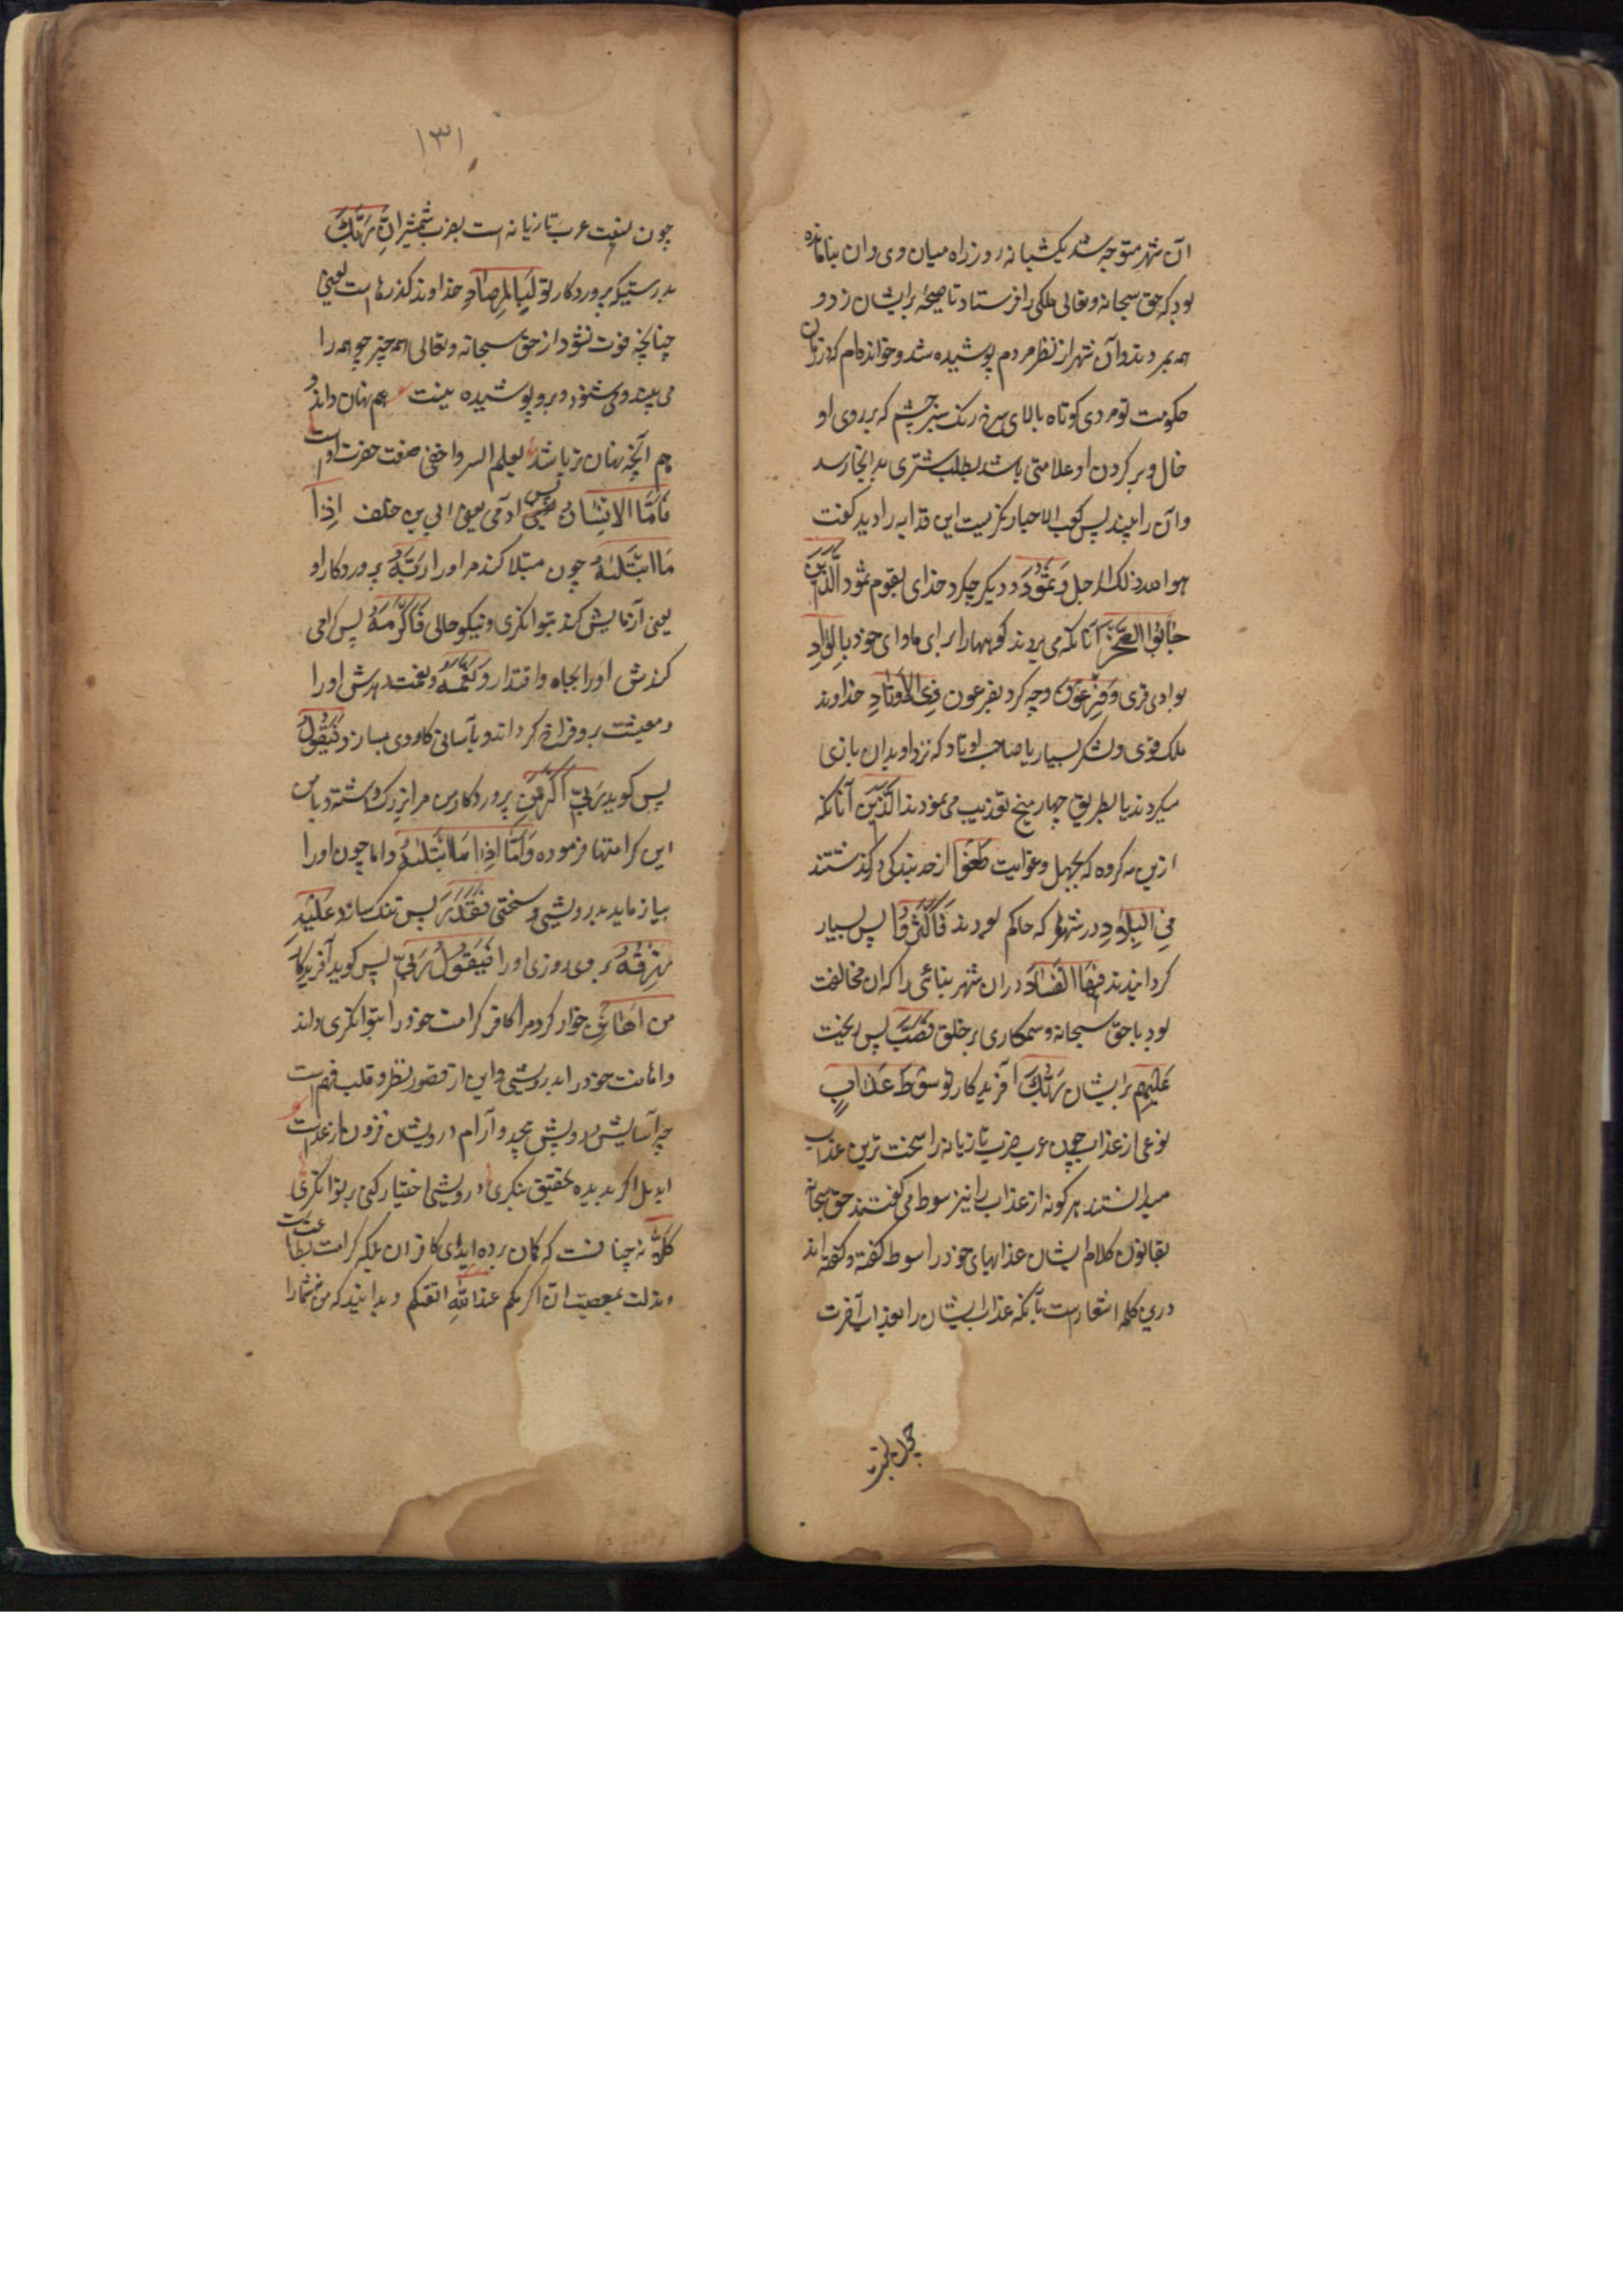 آن شهر متوجه شد یکشبانه روز راه میان وی و ان بنا مانده
بود که حق سبحانه و تعالی ملکی را فرستاد تا صیحهٔ برایشان زد و
همه بمردند و آن شهر از نظر مردم پوشیده شد و خوانده‌ام که در زمان
حکومت تو مردی کوتاه بالای سرخ رنک سبز چشم که بر روی او
خال و بر کردن او علامتی باشد بطلب شتری بدانجا رسد
و آن را بیند پس کعب الاحبار نکریست ابن قلابه را دید کفت
هو والله ذلک الرجل وَثَمُودَ و دیکر چکرد خدای بقوم ثمود الَّذِینَ
جَابُوا الصَّخْرَ آنانکه می بریدند کوهها را برای ماوای خود بِالْوَادِ
بوادی قری وَفِرْعَوْنَ و چه کرد بفرعون ذِی الْاَوْتَادِ خداوند
ملک قوی و لشکر بسیار یا صاحب اوتاد که نزد او بدان بازی
میکردند یا بطریق چهار میخ تعذیب می نمودند الَّذِینَ آنانکه
ازین سه کروه که بجهل و غوایت طَغَوْا از حد بندکی درکذشتند
فِی الْبِلَادِ در شهرها که حاکم بودند فَاَکْثَرُوا پس بسیار
کردانیدند فِیهَا الْفَسَادَ دران شهر بنائی را که ان مخالفت
بود با حق سبحانه و ستمکاری بر خلق فَصَبَّ پس ریخت
عَلَیْهِمْ برایشان رَبُّكَ آفریدکار تو سَوْطَ عَذَابٍ
نوعی از عذاب چون عرب ضرب تازیانه را سخت ترین عذاب
میدانستند هر کونه از عذاب را نیز سوط می کفتند حق سبحانه
بقانون کلام ایشان عذابهای خود را سوط کفته و کفته اند
درین کلمه اشعارست بآنکه عذاب ایشان را بعذاب آخرت
چون نسبت
۱۳۱
چون نسبت عرب تازیانه است بضرب شمشیر اِنَّ رَبَّكَ
بدرستیکه پروردکار تو لَبِالْمِرْصَادِ خداوند کذرهاست یعنی
چنانکه فوت نشود از حق سبحانه و تعالی همه چیز چو همه را
می بیند و می شنود و برو پوشیده نیست هم نهان داند و
هم آنچه نهان تر باشد یعلم السر و اخفی صفت حضرت اوست
فَاَمَّا الْاِنْسَانُ پس ادمی یعنی ابی بن خلف اِذَا
مَا ابْتَلَىٰهُ چون مبتلا کند مر او را رَبُّهُ پروردکار او
یعنی آزمایش کند بتوانکری و نیکو حالی فَاَكْرَمَهُ پس کرامی
کندش او را بجاه و اقتدار وَنَعَّمَهُ و نعمت دهدش او را
و معیشت برو فراخ کرداند و بآسانی کار وی بسازد فَیَقُولُ
پس کوید رَبِّی اَكْرَمَنِ پروردکار من مرا بزرک داشته و با من
این کرامتها فرموده وَاَمَّا اِذَا مَا ابْتَلَىٰهُ و اما چون او را
بیازماید بدرویشی و سختی فَقَدَرَ پس تنک سازد عَلَیْهِ
رِزْقَهُ بر وی روزی او را فَیَقُولُ رَبِّی پس کوید آفریدکار
من اَهَانَنِ خوار کرد مرا کافر کرامت خود را بتوانکری داند
و اهانت خود را بدرویشی و این از قصور نظر و قلت فهم است
چه آسایش درویش بیحد و آرام درویشان فزون از عدست
ایدل اکر بدیده تحقیق بنکری درویشی اختیار کنی بر توانکری
كَلَّا نه چنانست که کمان برده اند ای کافران بلکه کرامت بطاعت است
و مذلت بمعصیت ان اکرمکم عند الله اتقیکم و بدانید که من شما را